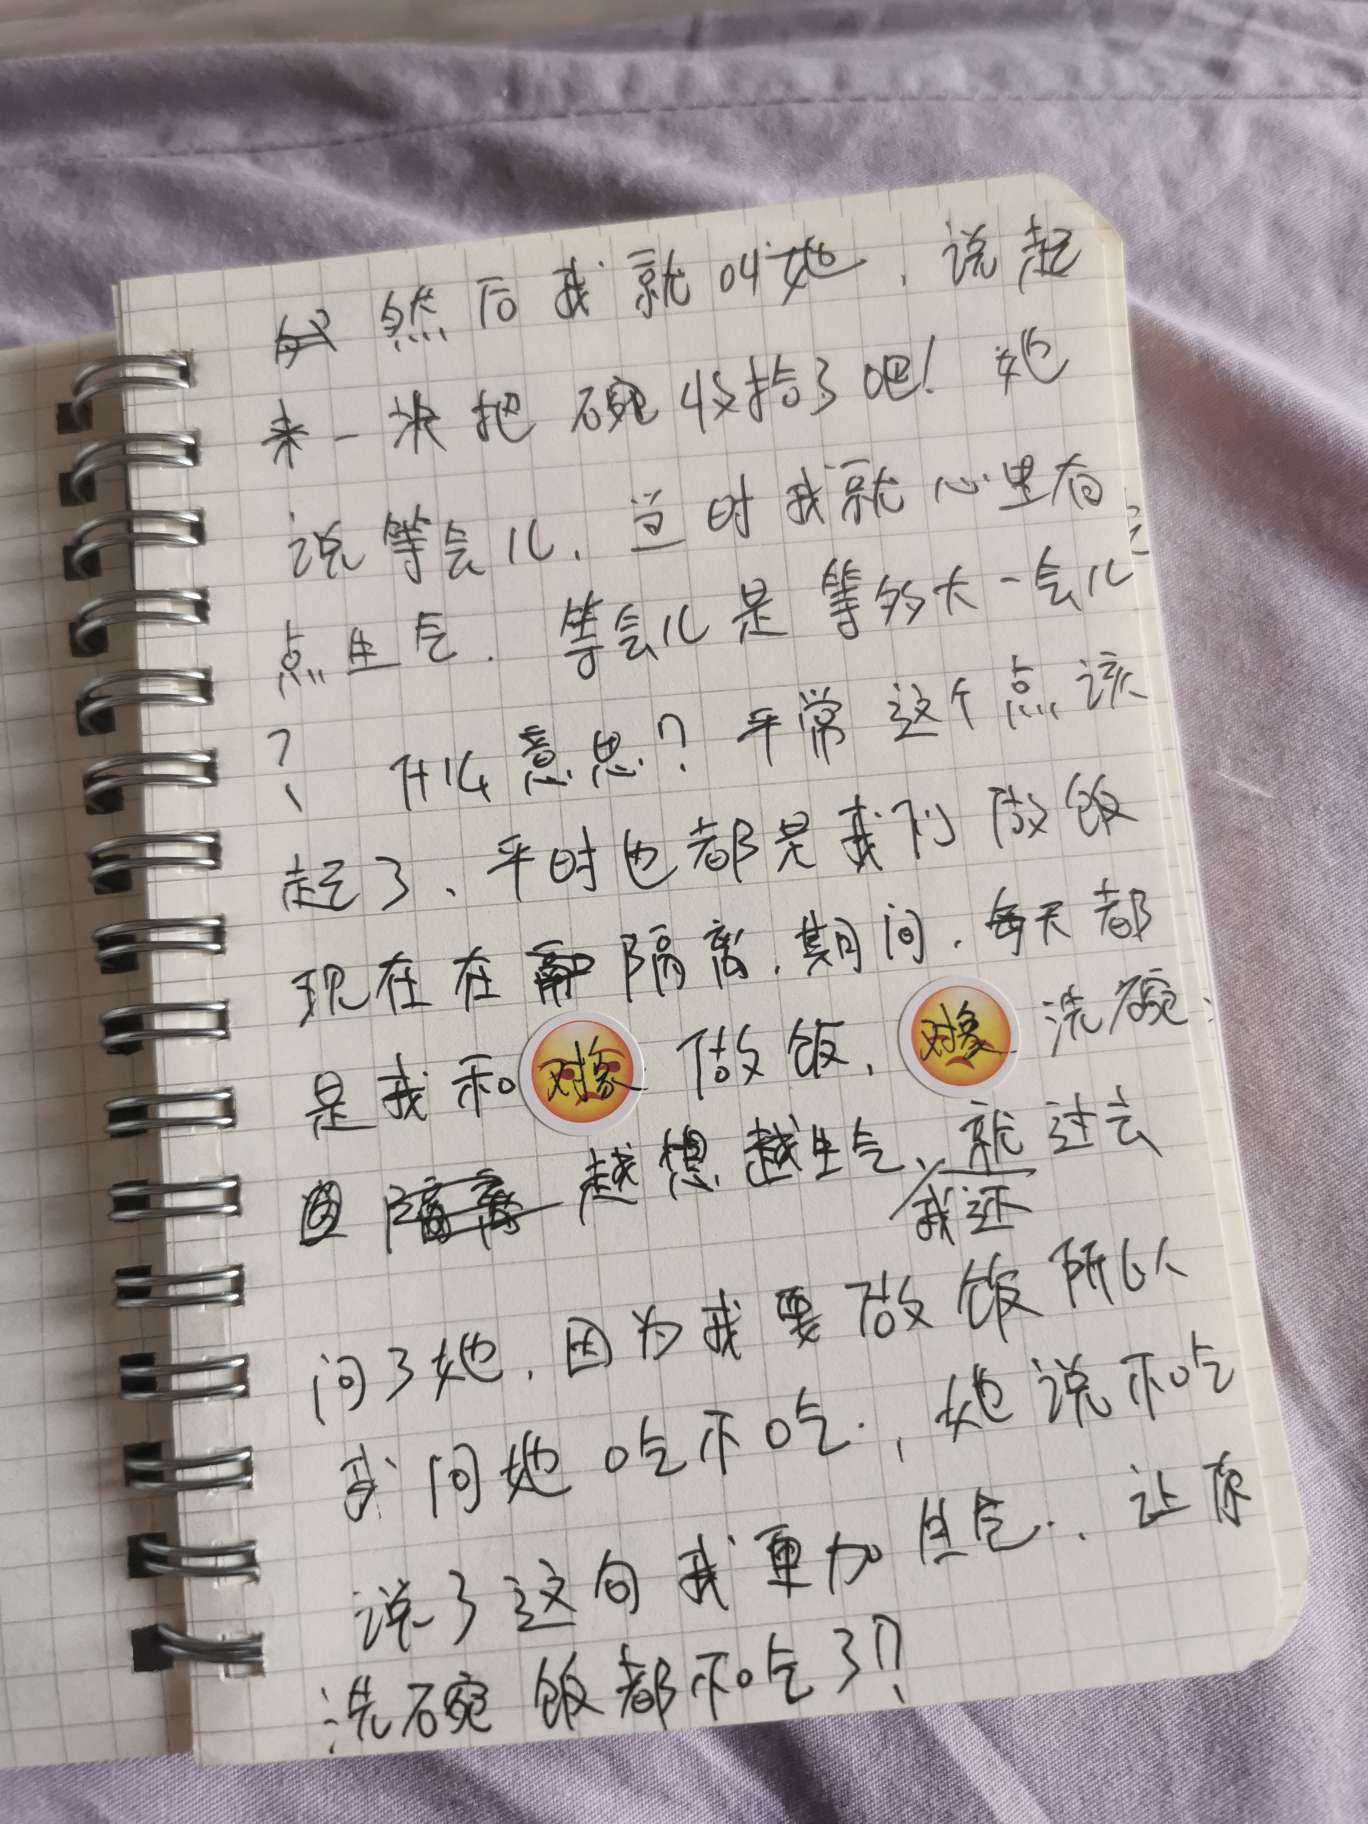 然后我就叫她，说起
来一块把碗收拾了吧！她
说等会儿，当时我就心里有
点生气．等会儿是等多大一会儿
？什么意思？平常这个点该
起了、平时也都是我们做饭
现在在隔离，期间，每天都
是我和对象做饭，对象洗碗；
越想越生气、就过去
我还
问了她，因为我要做饭所以
我问她吃不吃．，她说不吃
说了这句我更加生气．，让你
洗碗饭都不吃了？